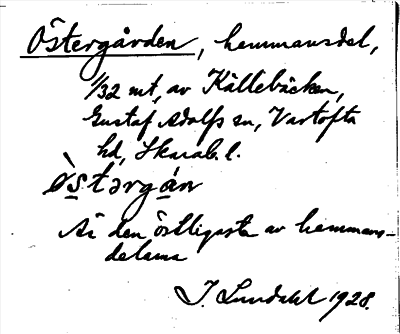 Östergården, hemmansdel,
1/32 mt, av Källebäcken,
Gustaf Adolfs sn, Vartofta
hd, Skarab. l.
östərgán
Är den östligaste av hemmans-
delarna
J. Lundahl 1928.